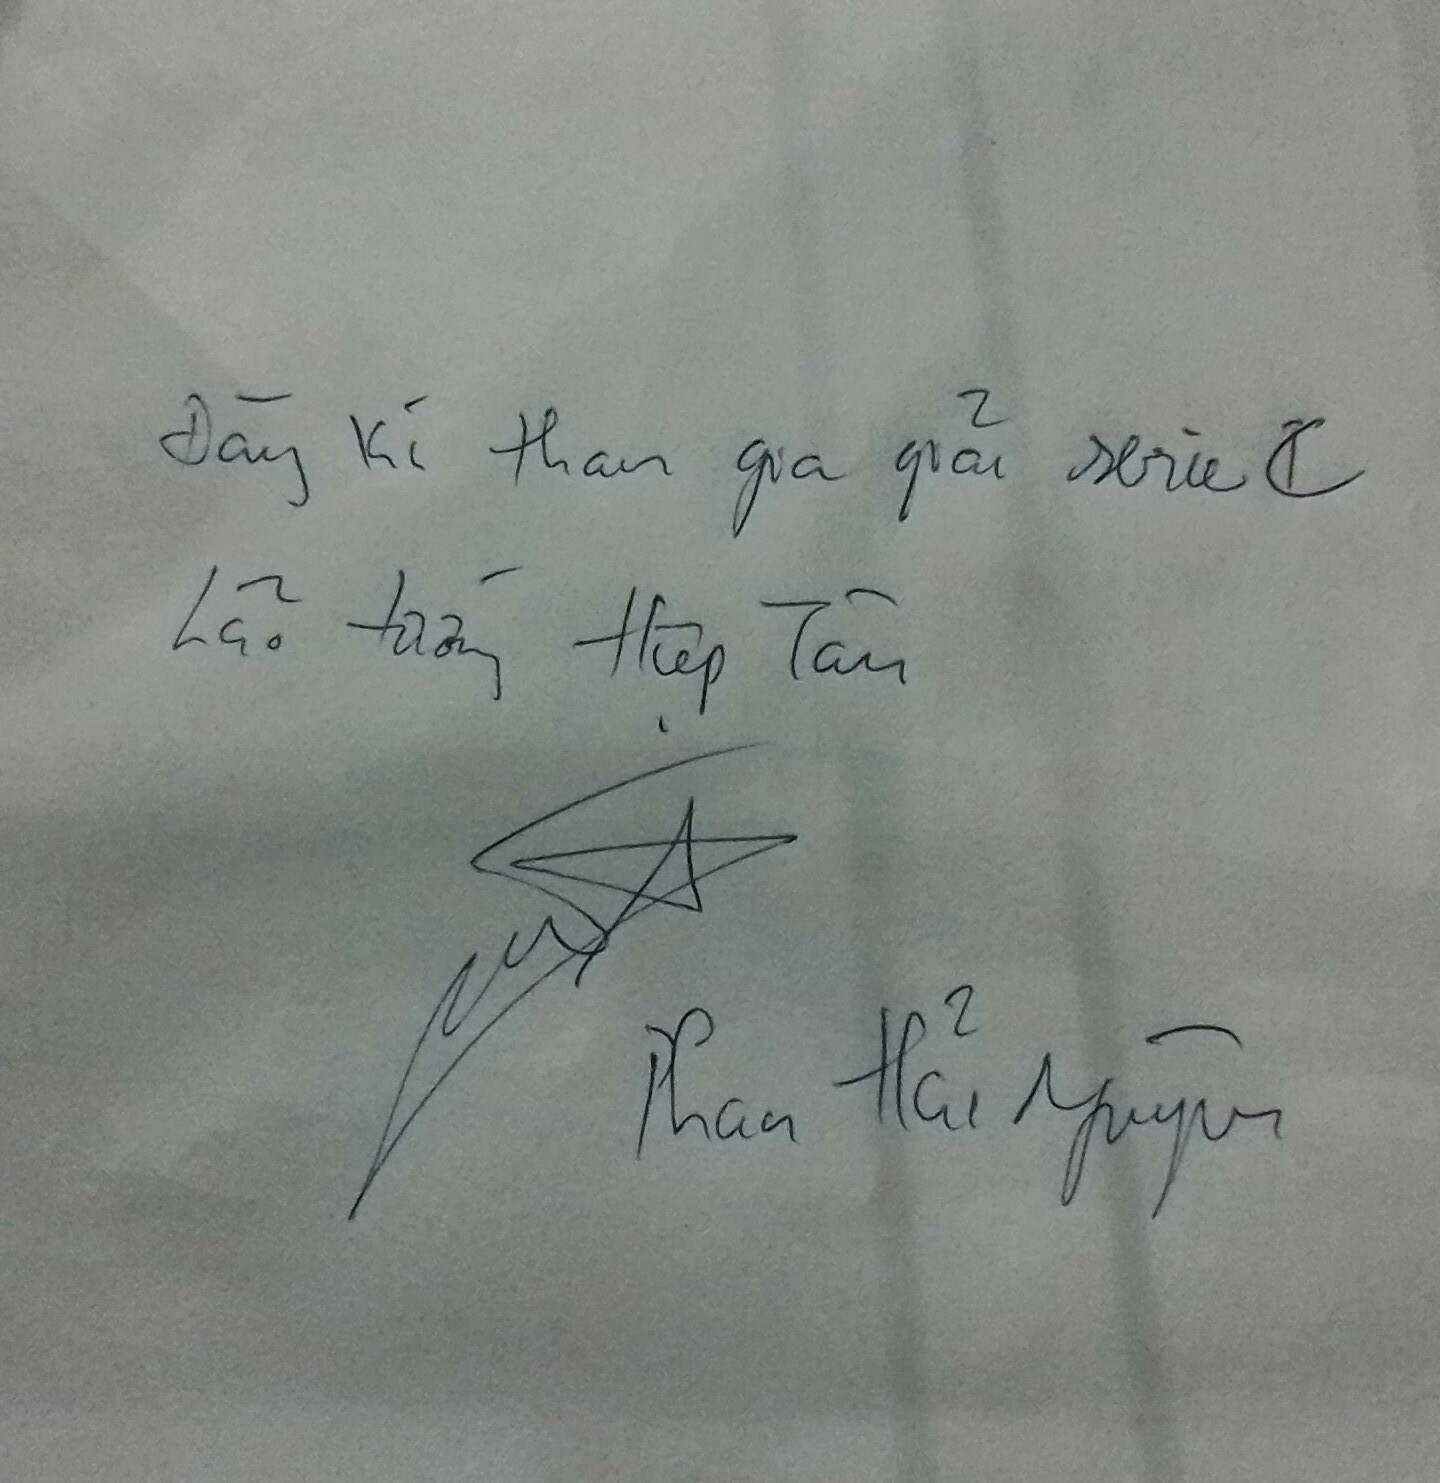 Đăng kí tham gia giải serie C
Lão tướng Hiệp Tân
Phan Hải Nguyên